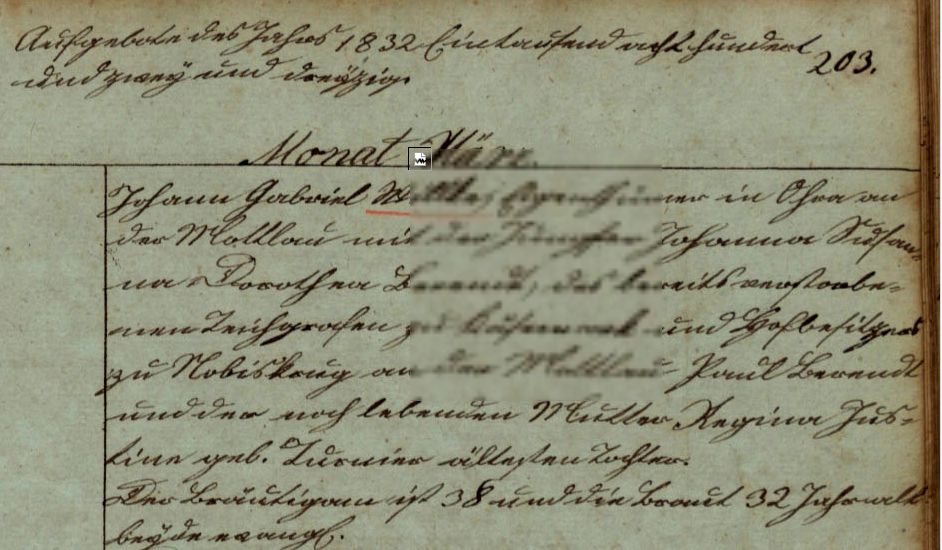 Aufgebote des Jahres 1832 Eintausend acht hundert
und zwey und dreyzig
203.
Monat
Johann Gabriel in Ohra an
der Mottlau mit Johanna Susan¬
na Dorothea bereits verstorbe¬
nen Teichgrafen und Hofbesitzers
zu Nobiskrug an Paul Berendt
und der noch lebenden Mutter Regina Jus¬
tine geb. Turnier ältesten Tochter.
Der Bräutigam ist 38 und die Braut 32 Jahr alt
beyde evangl.